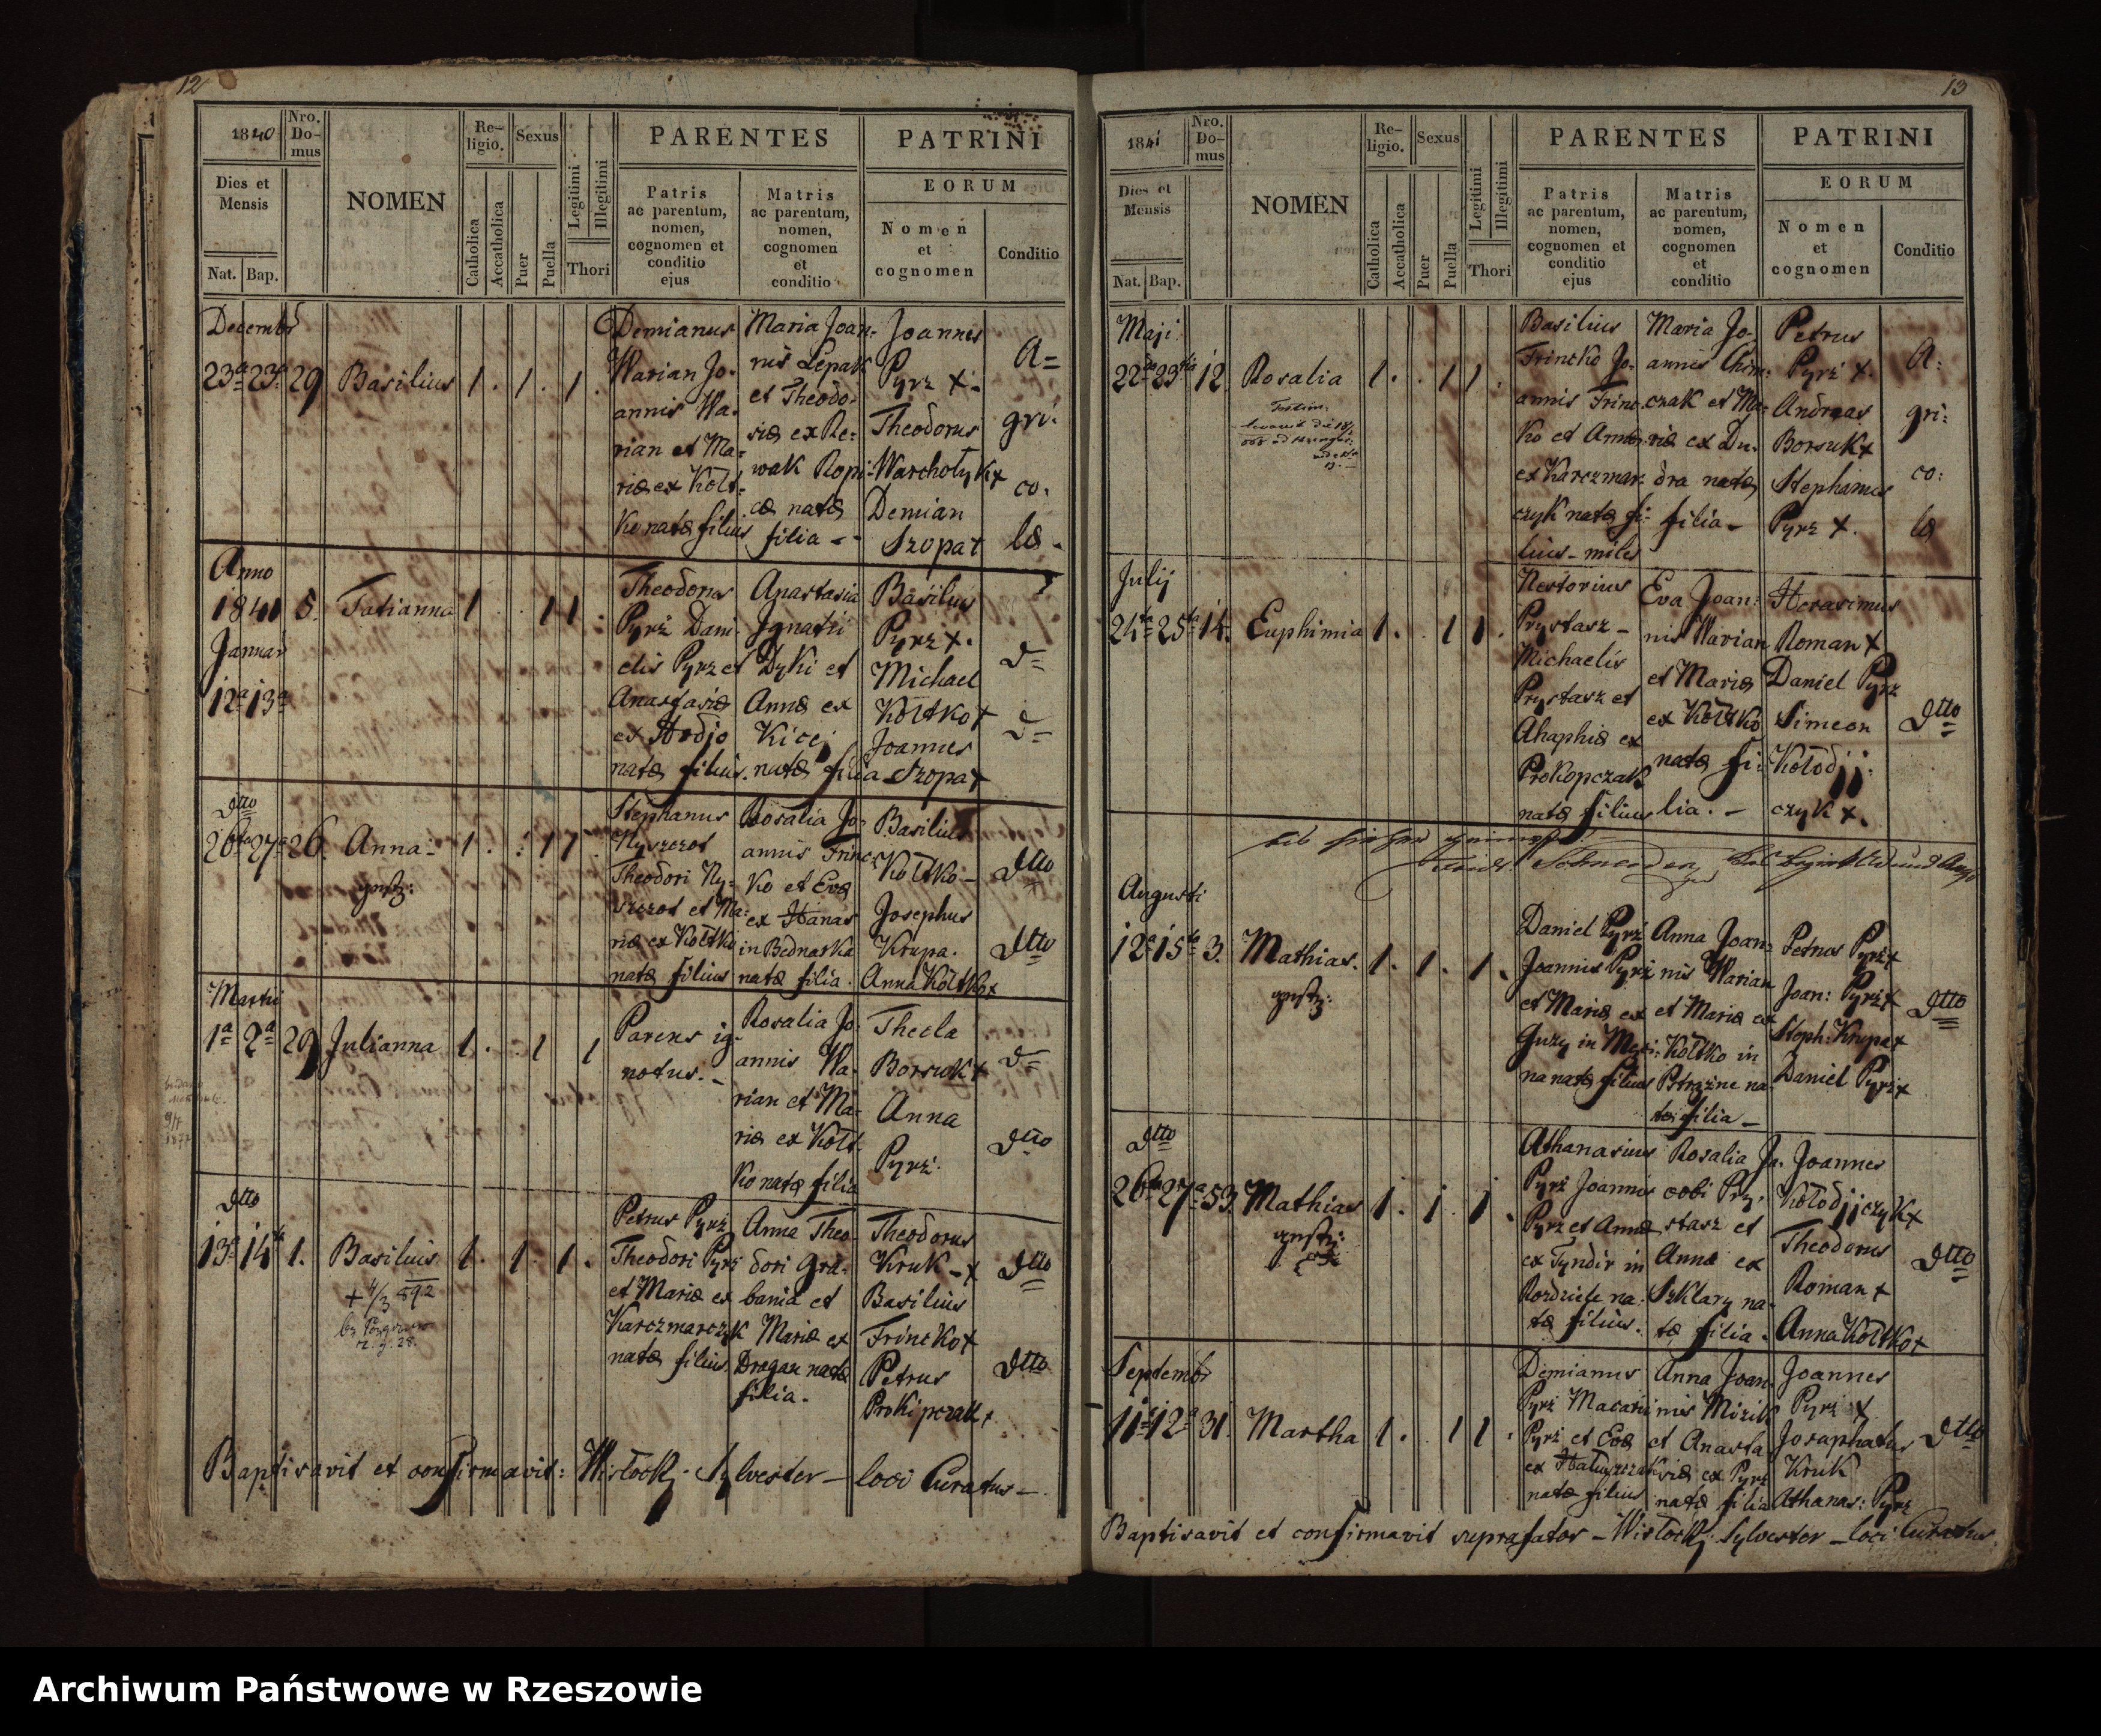 12
1840
Nro. Do- mus
Re- ligio.
Sexus
Legitimi
Illegitimi
PARENTES
PATRINI
Dies et Mensis
NOMEN
Catholica
Accatholica
Puer
Puella
Thori
Patris ac parentum, nomen, cognomen et conditio ejus
Matris ac parentum, nomen, cognomen et conditio
EORUM
Nomen et cognomen
Conditio
Nat. Bap.
Decembr
23a 23a 29 Basilius 1. 1. 1.
Demianus
Warian Jo-
annis Wa-
rian et Ma-
riæ ex Kolt-
ko natæ filius
Maria Joan-
nis Lepak
et Theodo-
riæ ex Re-
wak Ropi-
cæ natæ
filia
Joannes
Pyrz x.
Theodorus
Warchołyk x
Demian
Szopa x
A=
gri:
co:
læ.
Anno
1841 5. Tatianna 1 1 1.
Januar
12a 13a
Theodorus
Pyrż Dani-
elis Pyrz et
Anastasiæ
ex Hodjo
natæ filius.
Anastasia
Ignatii
Dyki et
Annæ ex
Kicej
natæ filia
Basilius
Pyrz x.
Michael
Koltko x
Joannes
Szopa x
d=
d=
dtto
26ta 27a 26. Anna 1. 1 1.
Stephanus
Nyszczot
Theodori Ny-
szczot et Ma-
riæ ex Koltko
natæ filius
Rosalia Jo-
annis Frinc-
ko et Evæ
ex Hanas
in Bednarka
natæ filia.
Basilius
Koltko
Josephus
Krupa.
Anna Koltko x
dtto
dtto
Martii
1a 2a 29 Julianna 1. 1 1
Parens ig-
notus.
Rosalia Jo-
annis Wa-
rian et Ma-
riæ ex Kolt-
ko natæ filia
Thecla
Borsuk x
Anna
Pyrż.
d=
dtto
dtto
13a 14ta 1. Basilius 1. 1. 1.
+ 4/3 892
Petrus Pyrż
Theodori Pyrż
et Mariæ ex
Karczmarczyk
natæ filius.
Anna Theo-
dori Gra-
bania et
Mariæ ex
Dragan natæ
filia.
Theodorus
Kruk x
Basilius
Frincko x
Petrus
Prokipczak x
dtto
dtto
Baptisavit et confirmavit: Wisłocky Sylvester loci Curatus
13
1841
Nro. Do- mus
Re- ligio.
Sexus
Legitimi
Illegitimi
PARENTES
PATRINI
Dies et Mensis
NOMEN
Catholica
Accatholica
Puer
Puella
Thori
Patris ac parentum, nomen, cognomen et conditio ejus
Matris ac parentum, nomen, cognomen et conditio
EORUM
Nomen et cognomen
Conditio
Nat. Bap.
Maji
22da 23tia 12 Rosalia 1. 1 1.
Basilius
Frincko Jo-
annis Frinc-
ko et Annæ
ex Karczmar-
czyk natæ fi-
lius miles
Maria Jo-
annis Chim-
czak et Ma-
riæ ex Du-
dra natæ
filia
Petrus
Pyrż x.
Andreas
Borsuk x
Stephanus
Pyrz x.
A:
gri:
co:
læ
Julij
24ta 25ta 14. Euphimia 1. 1 1.
Nestorius
Prystasz
Michaelis
Prystasz et
Ahaphiæ ex
Prokopczak
natæ filius
Eva Joan-
nis Warian
et Mariæ
ex Koltko
natæ fi-
lia.
Herasimus
Roman x
Daniel Pyrz
Simeon
Kołodij-
czyk x.
dtto
Augusti
12a 15ta 3. Mathias. 1. 1. 1.
Daniel Pyrż
Joannis Pyrż
et Mariæ ex
Guzy in Myci-
na natæ filius
Anna Joan-
nis Warian
et Mariæ ex
Koltko in
Petrozne na-
tæ filia
Petrus Pyrż x
Joan: Pyrż x
Steph: Krupa x
Daniel Pyrż x
dtto
dtto
26ta 27a 53. Mathias 1. 1. 1.
Athanasius
Pyrż Joannis
Pyrz et Annæ
ex Tyndir in
Rozdziele na-
tæ filius.
Rosalia Ja-
cobi Pry-
stasz et
Annæ ex
Szklary na-
tæ filia.
Joannes
Kołodijczyk x
Theodorus
Roman x
Anna Koltko x
dtto
Septembr
11a 12a 31. Martha 1. 1 1.
Demianus
Pyrż Macarii
Pyrż et Evæ
natæ filius
Anna Joan-
nis Mizik
et Anasta-
siæ ex Pyrż
natæ filia
Joannes
Pyrż x
Josaphatus
Kruk
Athanas: Pyrz
dtto
Baptisavit et confirmavit suprafatus Wisłocky Sylvester loci Curatus
Archiwum Państwowe w Rzeszowie